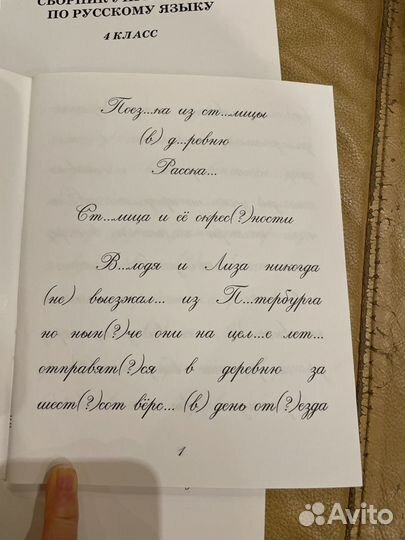 ПО РУССКОМУ ЯЗЫКУ
4 КЛАСС
Поез...ка из ст...лицы
(в) д...ревню
Расска...
Ст...лица и её окрес(?)ности
В...лодя и Лиза никогда
(не) выезжал... из П...тербурга
но нын(?)че они на цел...е лет...
отправят(?)ся в деревню за
шест(?)сот вёрс... (в) день от(?)езда
1
Avito